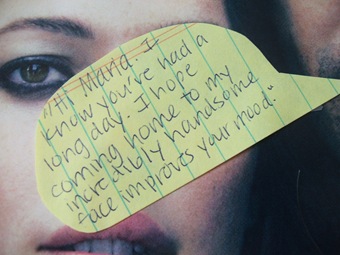 "Hi Mand. I
know you've had a
long day. I hope
coming home to my
incredibly handsome
face improves your mood."